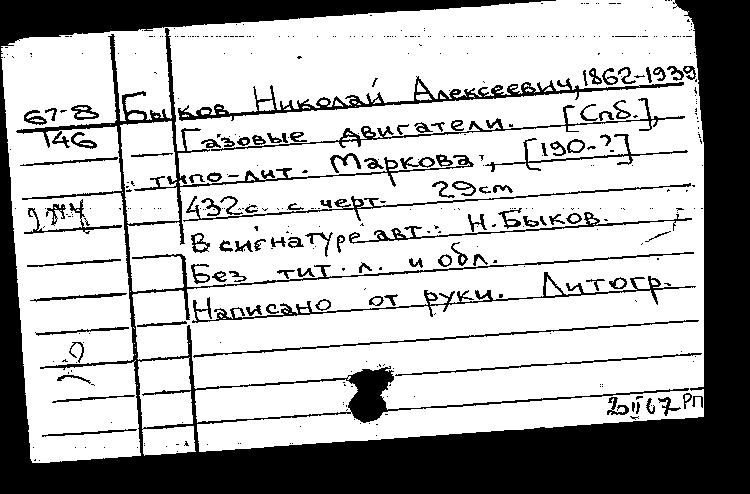 67-8 Быков, Николай Алексеевич, 1862-1939
146 Газовые двигатели. [Спб.],
типо-лит. Маркова, [190-?]
432с. с черт. 29cm
В сигнатуре авт.: Н.Быков.
Без тит. л. и обл.
Написано от руки. Литогр.
20 II 67 РП